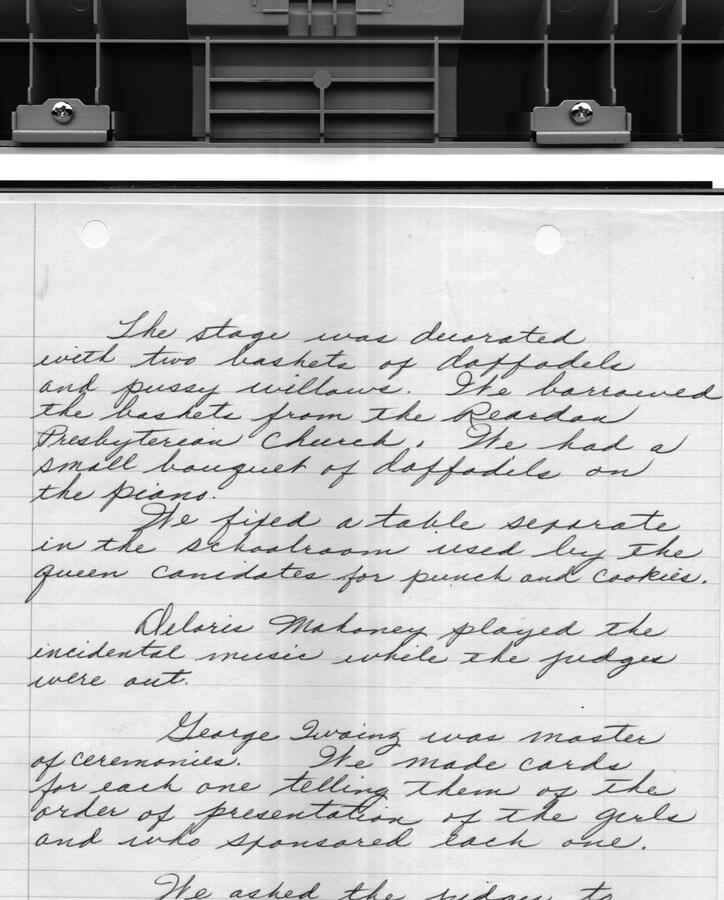 The stage was decorated
with two baskets of daffodels
and pussy willows. We borrowed
the baskets from the Reardan
Presbyterian Church. We had a
small bouquet of daffodels on
the piano.
We fixed a table separate
in the schoolroom used by the
queen canidates for punch and cookies.
Deloris Mahoney played the
incidental music while the judges
were out.
George was master
of ceremonies. We made cards
for each one telling them of the
order of presentation of the girls
and who sponsored each one.
We asked the judges to